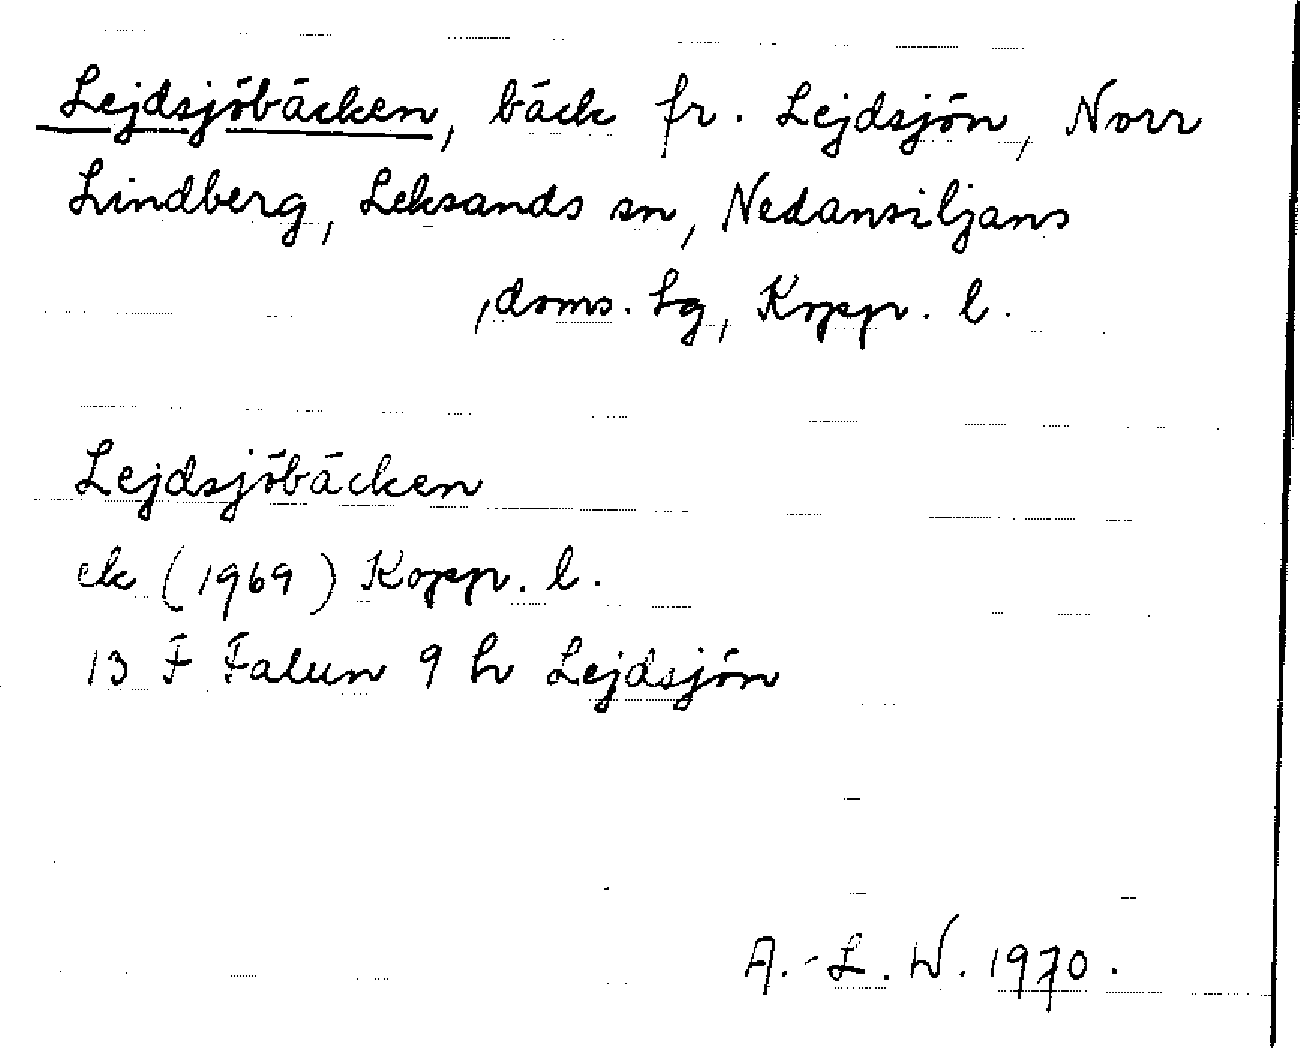 Lejdsjöbäcken, bäck fr. Lejdsjön, Norr
Lindberg, Leksands sn, Nedansiljans
,doms. hg, Kopp. l.
Lejdsjöbäcken
ek (1969) Kopp. l.
13 F Falun 9 h Lejdsjön
A.-L. W. 1970.